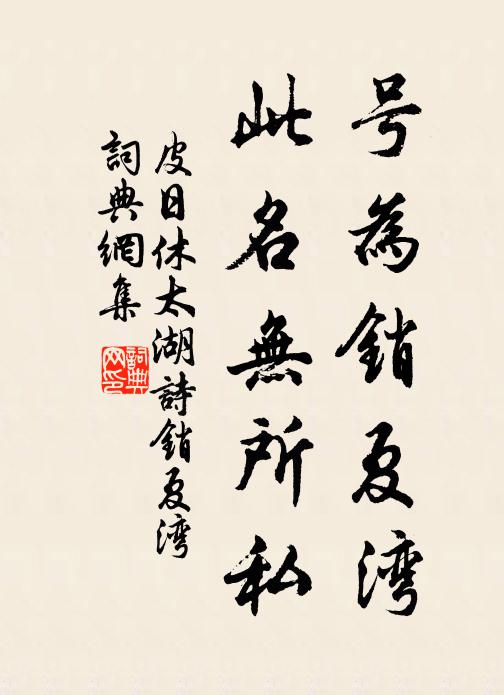 号為銷夏湾
此名無所私
皮日休太湖詩銷夏湾
詞典網集
詞典网印